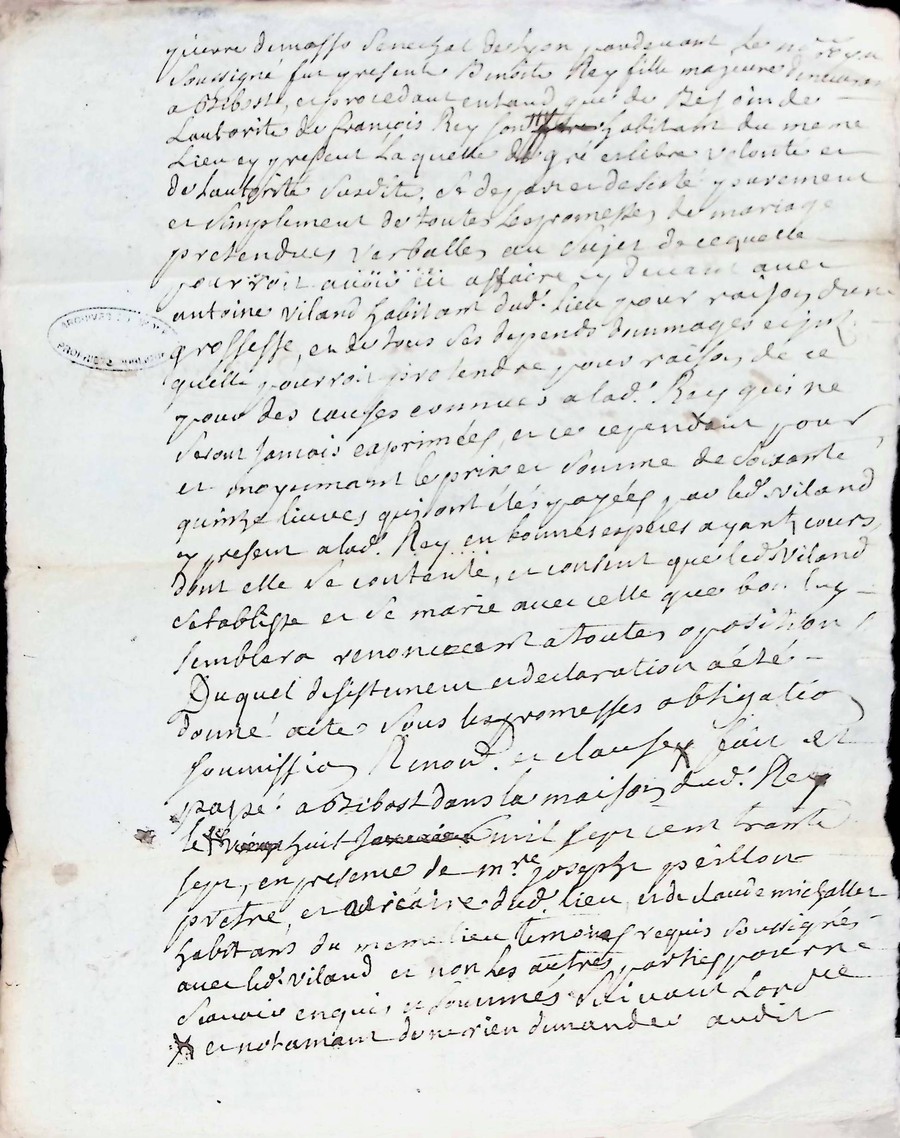 pierre demasso Senechal de Lyon pardevant le no.re
Soussigné fut present Benoite Rey fille majeure
a Bibost, et procedant entand que de Besoin de
Lautorite de francois Rey son habitant du meme
Lieu cy present Laquelle de gré et libre volonté et
de Lautorité Susdite, et desisté purement
et Simplement de toutes les promesses de mariage
pretendues verballes au Sujet de ce quelle
pourroit avoir affaire cy devant avec
antoine viland habitant dud. Lieu pour raison dune
grossesse, et de tous Ses depends dommages et
quelle pourroit pretendre pour raison de ce
pour des causes connues a lad. Rey qui ne
Seront Jamais exprimées, et ce cependant pour
et moyennant le prix et Somme de Soixante
quinze livres qui ont étés payées par led. viland
cy present a lad. Rey en bonnes especes ayant cours
dont elle Se contente, et consent que led. viland
Setablisse et Se marie avec celle que bon luy
Semblera renonceant a toutes oposition
Duquel desistement et declaration a eté
donné acte Sous les promesses obligatio
Soumission Renon.d et clauses fait et
passé a Bibost dans la maison dud. Rey
le huit mil sept cent trante
Sept, en presence de m.re Joseph perillon
prêtre, et vicaire dud. lieu, et de claude michallet
habitans du meme lieu temoins requis Soussignés
avec led. viland et non les autres parties pour ne
Scavoir enquis et Sommés Suivant Lord.ce
et notamant de ne rien demander audit
ARCHIVES